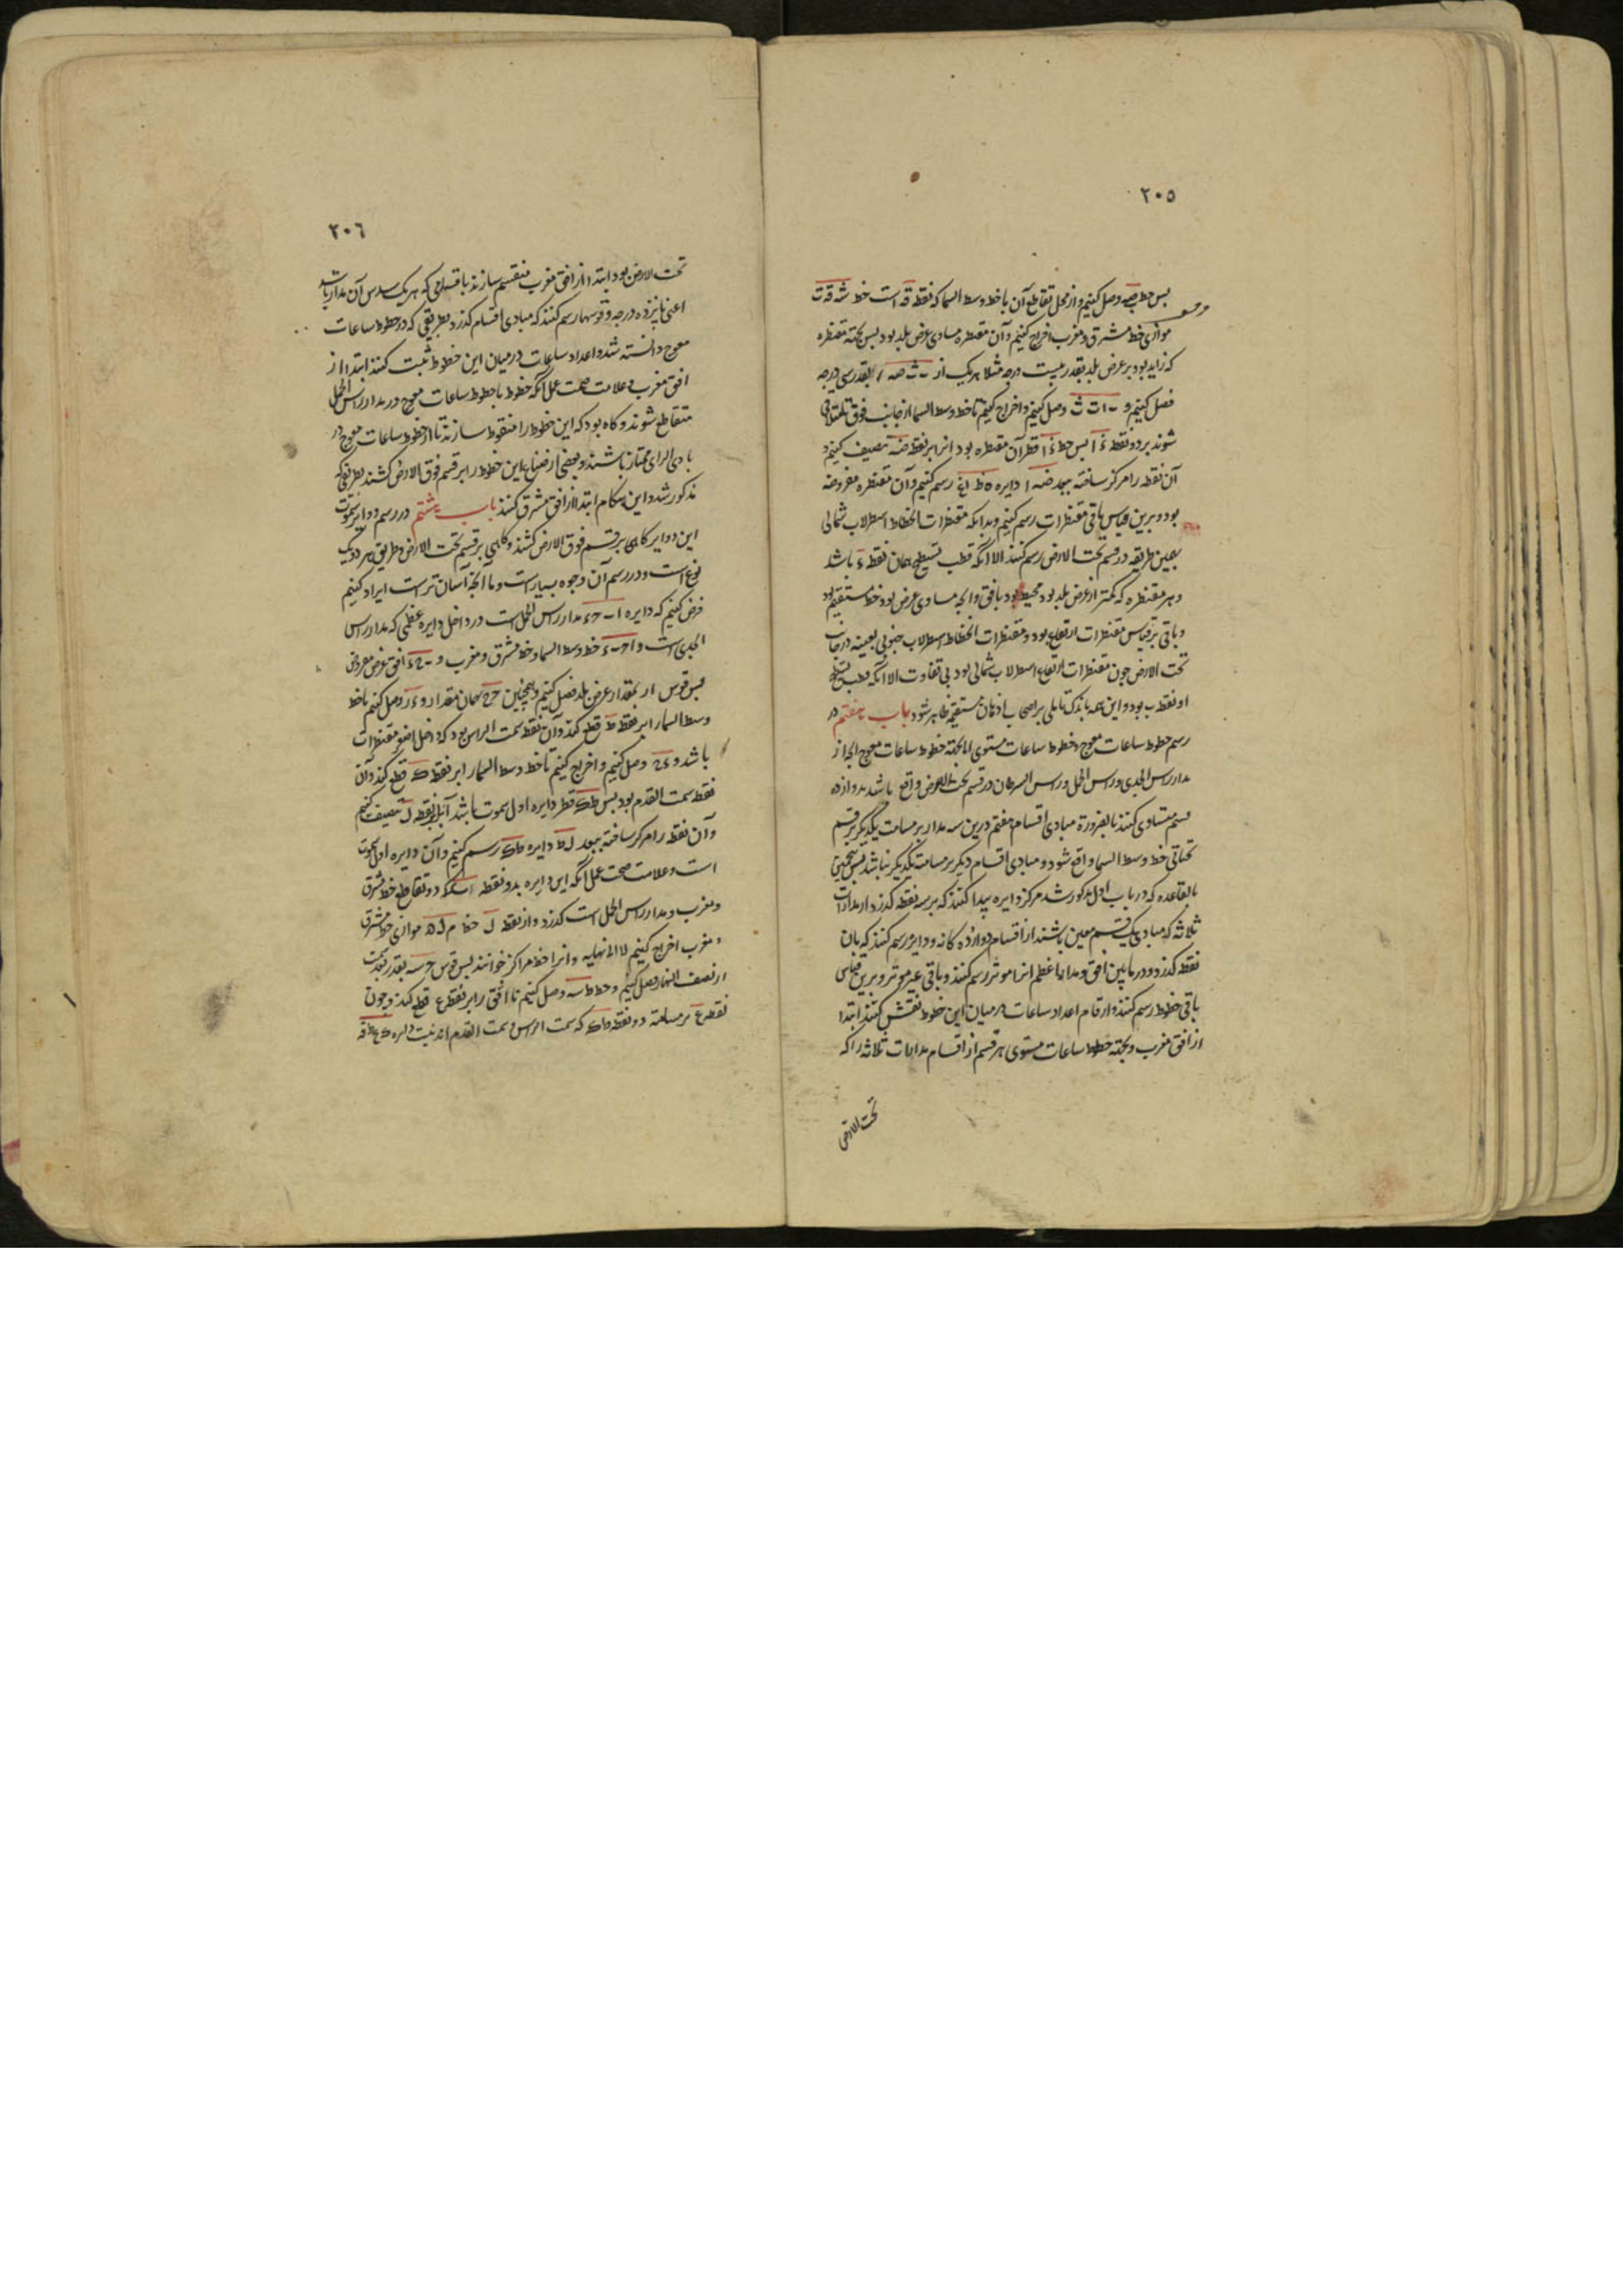 ٢٠٥
پس خط صه وصل کنیم و از محل تقاطع آن با خط وسط السما که نقطه قه است خط شه قه ت
موازی خط مشرق و مغرب اخراج کنیم و آن مقنطره مساوی عرض بلد بود پس بجهة مقنطره
که زاید بود بر عرض بلد بقدر بیست درجه مثلا هر یک از ث صه بقدر سی درجه
فصل کنیم و وصل کنیم و اخراج کنیم تا خط وسط السما از جانب فوق تا متلاقی
شوند بر دو نقطه پس خط قطر آن مقنطره بود انرا بر نقطه ضه تنصیف کنیم و
آن نقطه را مرکز ساخته ببعد ضه ا دایره رسم کنیم و آن مقنطره مفروضه
بود و برین قیاس باقی مقنطرات رسم کنیم و بدانکه مقنطرات انحطاط اسطرلاب شمالی
بعین طریقه در قسم تحت الارض رسم کنند الا انکه قطب تسطیح همان نقطه ء باشد
و هر مقنطره که کمتر از عرض بلد بود محیط بود بافق و انچه مساوی عرض بود خط مستقیم بود
و باقی بر قیاس مقنطرات ارتفاع بود و مقنطرات انحطاط اسطرلاب جنوبی بعینه در جانب
تحت الارض چون مقنطرات ارتفاع اسطرلاب شمالی بود بی تفاوت الا آنکه قطب تسطیح
او نقطه ب بود و این همه باندک تاملی بر اصحاب اذهان مستقیمه ظاهر شود باب هفتم در
رسم خطوط ساعات معوج و خطوط ساعات مستوی اما بجهة خطوط ساعات معوج انچه از
مدار راس الجدی و راس الحمل و راس السرطان در قسم تحت الارض واقع باشد بدوازده
قسم متساوی کنند بالضرورة مبادی اقسام هفتم درین سه مدار بر مسامت یکدیگر بر قسم
تحتانی خط وسط السما واقع شود و مبادی اقسام دیگر بر مسامته یکدیگر نباشد پس
بالقاعده که در باب اول مذکور شد مرکز دایره پیدا کنند که بر سه نقطه گذرد از مدارات
ثلاثه که مبادی یک قسم معین باشند از اقسام دوازده کانه و دایره رسم کنند که بان
نقطه گذرد و در مابین افق و مدار اعظم انرا موثر رسم کنند و باقی غیر موثر و برین قیاس
باقی خطوط رسم کنند و ارقام اعداد ساعات در میان این خطوط نقش کنند ابتدا
از افق مغرب و بجهة خطوط ساعات مستوی هر قسم از اقسام مدارات ثلاثه را که
تحت الارض
٢٠٦
تحت الارض بود ابتدا از افق مغرب منقسم سازند باقسامی که هر یک سدس آن مدار باشد
اعنی پانزده درجه و قوسها رسم کنند که مبادی اقسام گذرد بطریقی که در خطوط ساعات
معوج دانسته شد و اعداد ساعات در میان این خطوط ثبت کنند ابتدا از
افق مغرب و علامت صحت عمل آنکه خطوط با خطوط ساعات معوج در مدار راس الحمل
متقاطع شوند و گاه بود که این خطوط را منقوط سازند تا از خطوط ساعات معوج در
بادی الرای ممتاز باشند و بعضی از صناع این خطوط را بر قسم فوق الارض کشند بطریقی که
مذکور شد و این هنگام ابتدا از افق مشرق کنند باب هشتم در رسم دوایر سموت
این دوایر گاهی بر قسم فوق الارض کشند و گاهی بر قسم تحت الارض و طریق هر دو یک
نوع است و در رسم آن وجوه بسیار است و ما انچه آسان تر است ایراد کنیم
فرض کنیم که دایره ا ب ح ء مدار راس الحمل است در داخل دایره عظمی که مدار راس
الجدی است و خط وسط السما و خط مشرق و مغرب و افق عرض معروض
پس قوس ا ر بمقدار عرض بلد فصل کنیم و همچنین ح ه همان مقدار و ء ر وصل کنیم تا خط
وسط السما را بر نقطه ط قطع کند و آن نقطه سمت الراس بود که داخل اصغر مقنطرات
باشد و وصل کنیم و اخراج کنیم تا خط وسط السما را بر نقطه ک قطع کند و آن
نقطه سمت القدم بود پس ط ک قطر دایره اول سموت باشد آنرا بر نقطه ل تنصیف کنیم
و آن نقطه را مرکز ساخته ببعد ل ط دایره ط ک رسم کنیم و آن دایره اول سموت
است و علامت صحت عمل آنکه این دایره بدو نقطه دو تقاطع خط مشرق
و مغرب و مدار راس الحمل است گذرد و از نقطه ل خط م ل ن موازی خط مشرق
و مغرب اخراج کنیم لا الی نهایه و انرا خط مراکز خوانند پس قوس ح سه بقدر بعد سمت
از نصف النهار فصل کنیم و خط ط سه وصل کنیم تا افق را بر نقطه ع قطع کند و چون
نقطه ع بر مسامته دو نقطه ط ک که سمت الراس و سمت القدم اند نیست